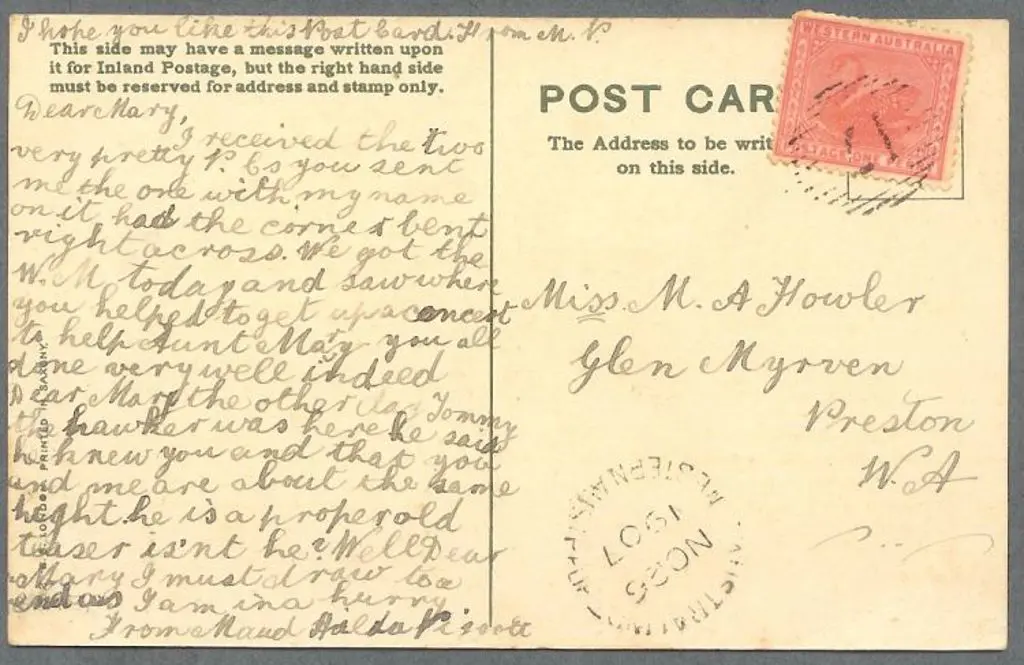 I hope you like this Post Card. From M. P.
This side may have a message written upon
it for Inland Postage, but the right hand side
must be reserved for address and stamp only.
Dear Mary,
I received the two
very pretty P. Cs you sent
me the one with my name
on it had the corner bent
right across. We got the
W. M today and saw where
you helped to get up a concert
to help Aunt Mary you all
done very well indeed
Dear Mary the other day Tommy
the hawker was here he said
he knew you and that you
and me are about the same
height. he is a proper old
teaser is'nt he? Well Dear
Mary I must draw to a
end as I am in a hurry
From Maud Hilda
LONDON. PRINTED IN SAXONY.
POST CAR
The Address to be writ
on this side.
WESTERN AUSTRALIA
POSTAGE ONE
Miss. M. A Fowler
Glen Myrven
Preston
W. A
WESTERN AUSTRALIA
1907
NO 26